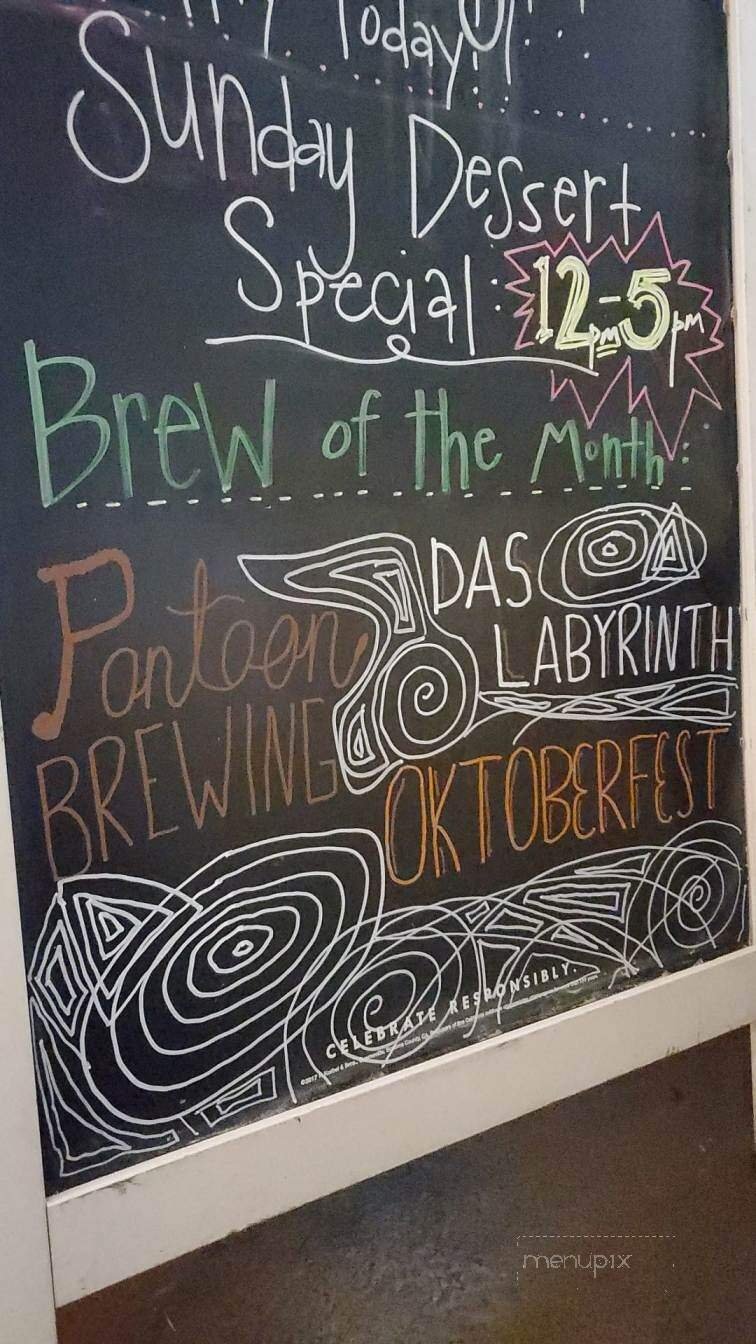 Today!!
Sunday Dessert
Special: 12pm-5pm
Brew of the Month:
Pontoon
BREWING
DAS
LABYRINTH
OKTOBERFEST
CELEBRATE RESPONSIBLY.
menupix